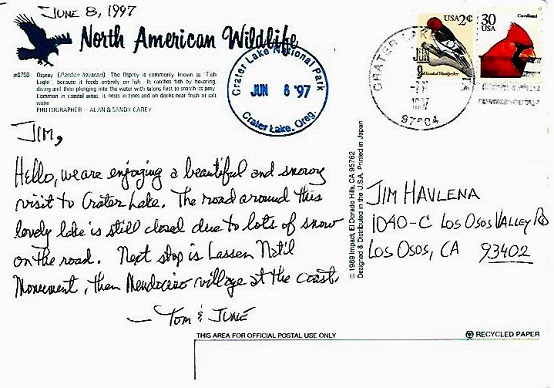 June 8, 1997
North American Wildlife
#9750 Osprey (Pandion haliaetus) The Osprey is commonly known as "Fish
Eagle", because it feeds entirely on fish. It catches fish by hovering,
diving and then plunging into the water with talons first to snatch its prey.
Common in coastal areas, it nests in trees and on docks near fresh or salt
water.
PHOTOGRAPHER - ALAN & SANDY CAREY
Crater Lake National Park
JUN 8 '97
Crater Lake, Oreg.
CRATER LAKE
JUN
1997
97604
USA 2¢
Red-headed Woodpecker
30
USA
Cardinal
Jim,
Hello, we are enjoying a beautiful and snowy
visit to Crater Lake. The road around this
lovely lake is still closed due to lots of snow
on the road. Next stop is Lassen Nat'l
Monument, then Mendocino village at the coast.
— Tom & June
© 1989 Impact, El Dorado Hills, CA 95762
Designed & Distributed in the U.S.A. Printed in Japan
Jim Havlena
1040-C Los Osos Valley Rd
Los Osos, CA 93402
THIS AREA FOR OFFICIAL POSTAL USE ONLY
RECYCLED PAPER